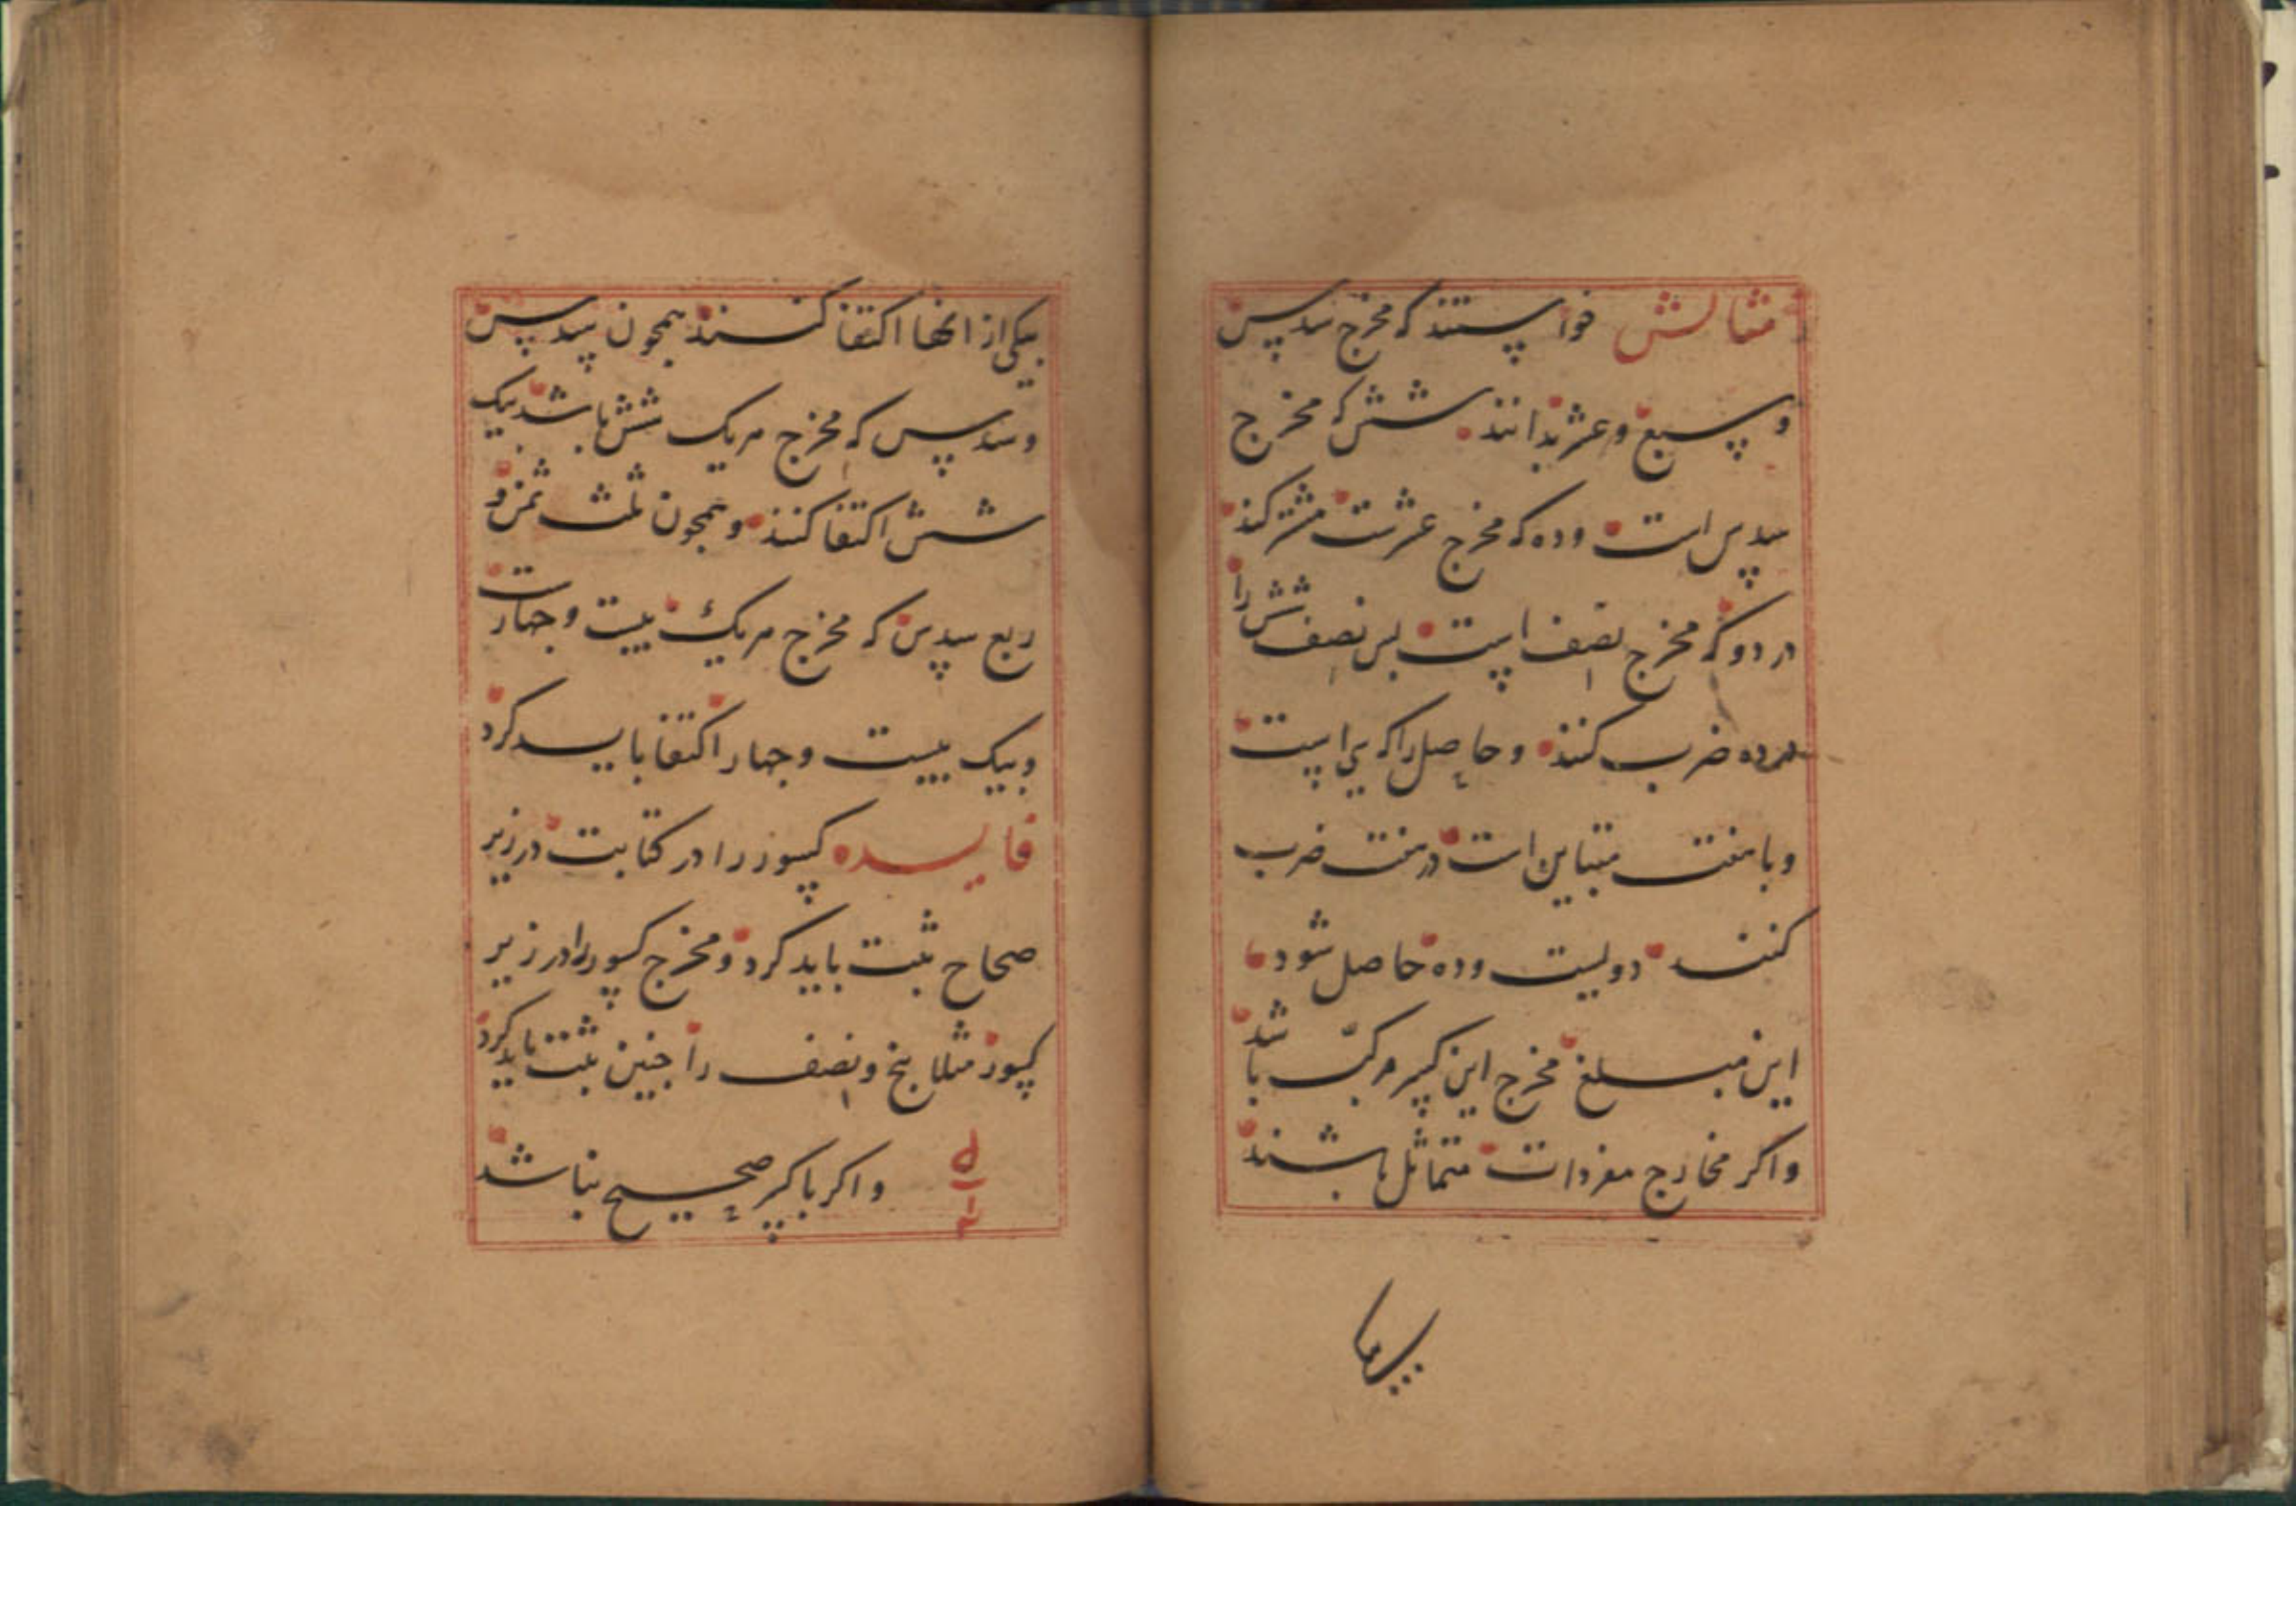 مثالش خواستند که مخرج سدس
و سبع و عشر بدانند شش که مخرج
سدس است و ده که مخرج عشرست مشترکند
در دو که مخرج نصف است پس نصف شش را
در ده ضرب کنند و حاصل را که سی است
و با هفت متباین است در هفت ضرب
کنند دویست و ده حاصل شود
این مبلغ مخرج این کسر مرکب باشد
و اکر مخارج مفردات متماثل باشند
بیکی از انها اکتفا کنند همچون سدس
و سدس که مخرج هر یک شش باشد بیک
شش اکتفا کنند و همچون ثلث ثمن و
ربع سدس که مخرج هر یک بیست و چهارست
و بیک بیست و چهار اکتفا باید کرد
فایده کسور را در کتابت در زیر
صحاح ثبت باید کرد و مخرج کسور را در زیر
کسور مثلا پنج و نصف را چنین ثبت باید کرد
و اکر با کسر صحیح نباشد